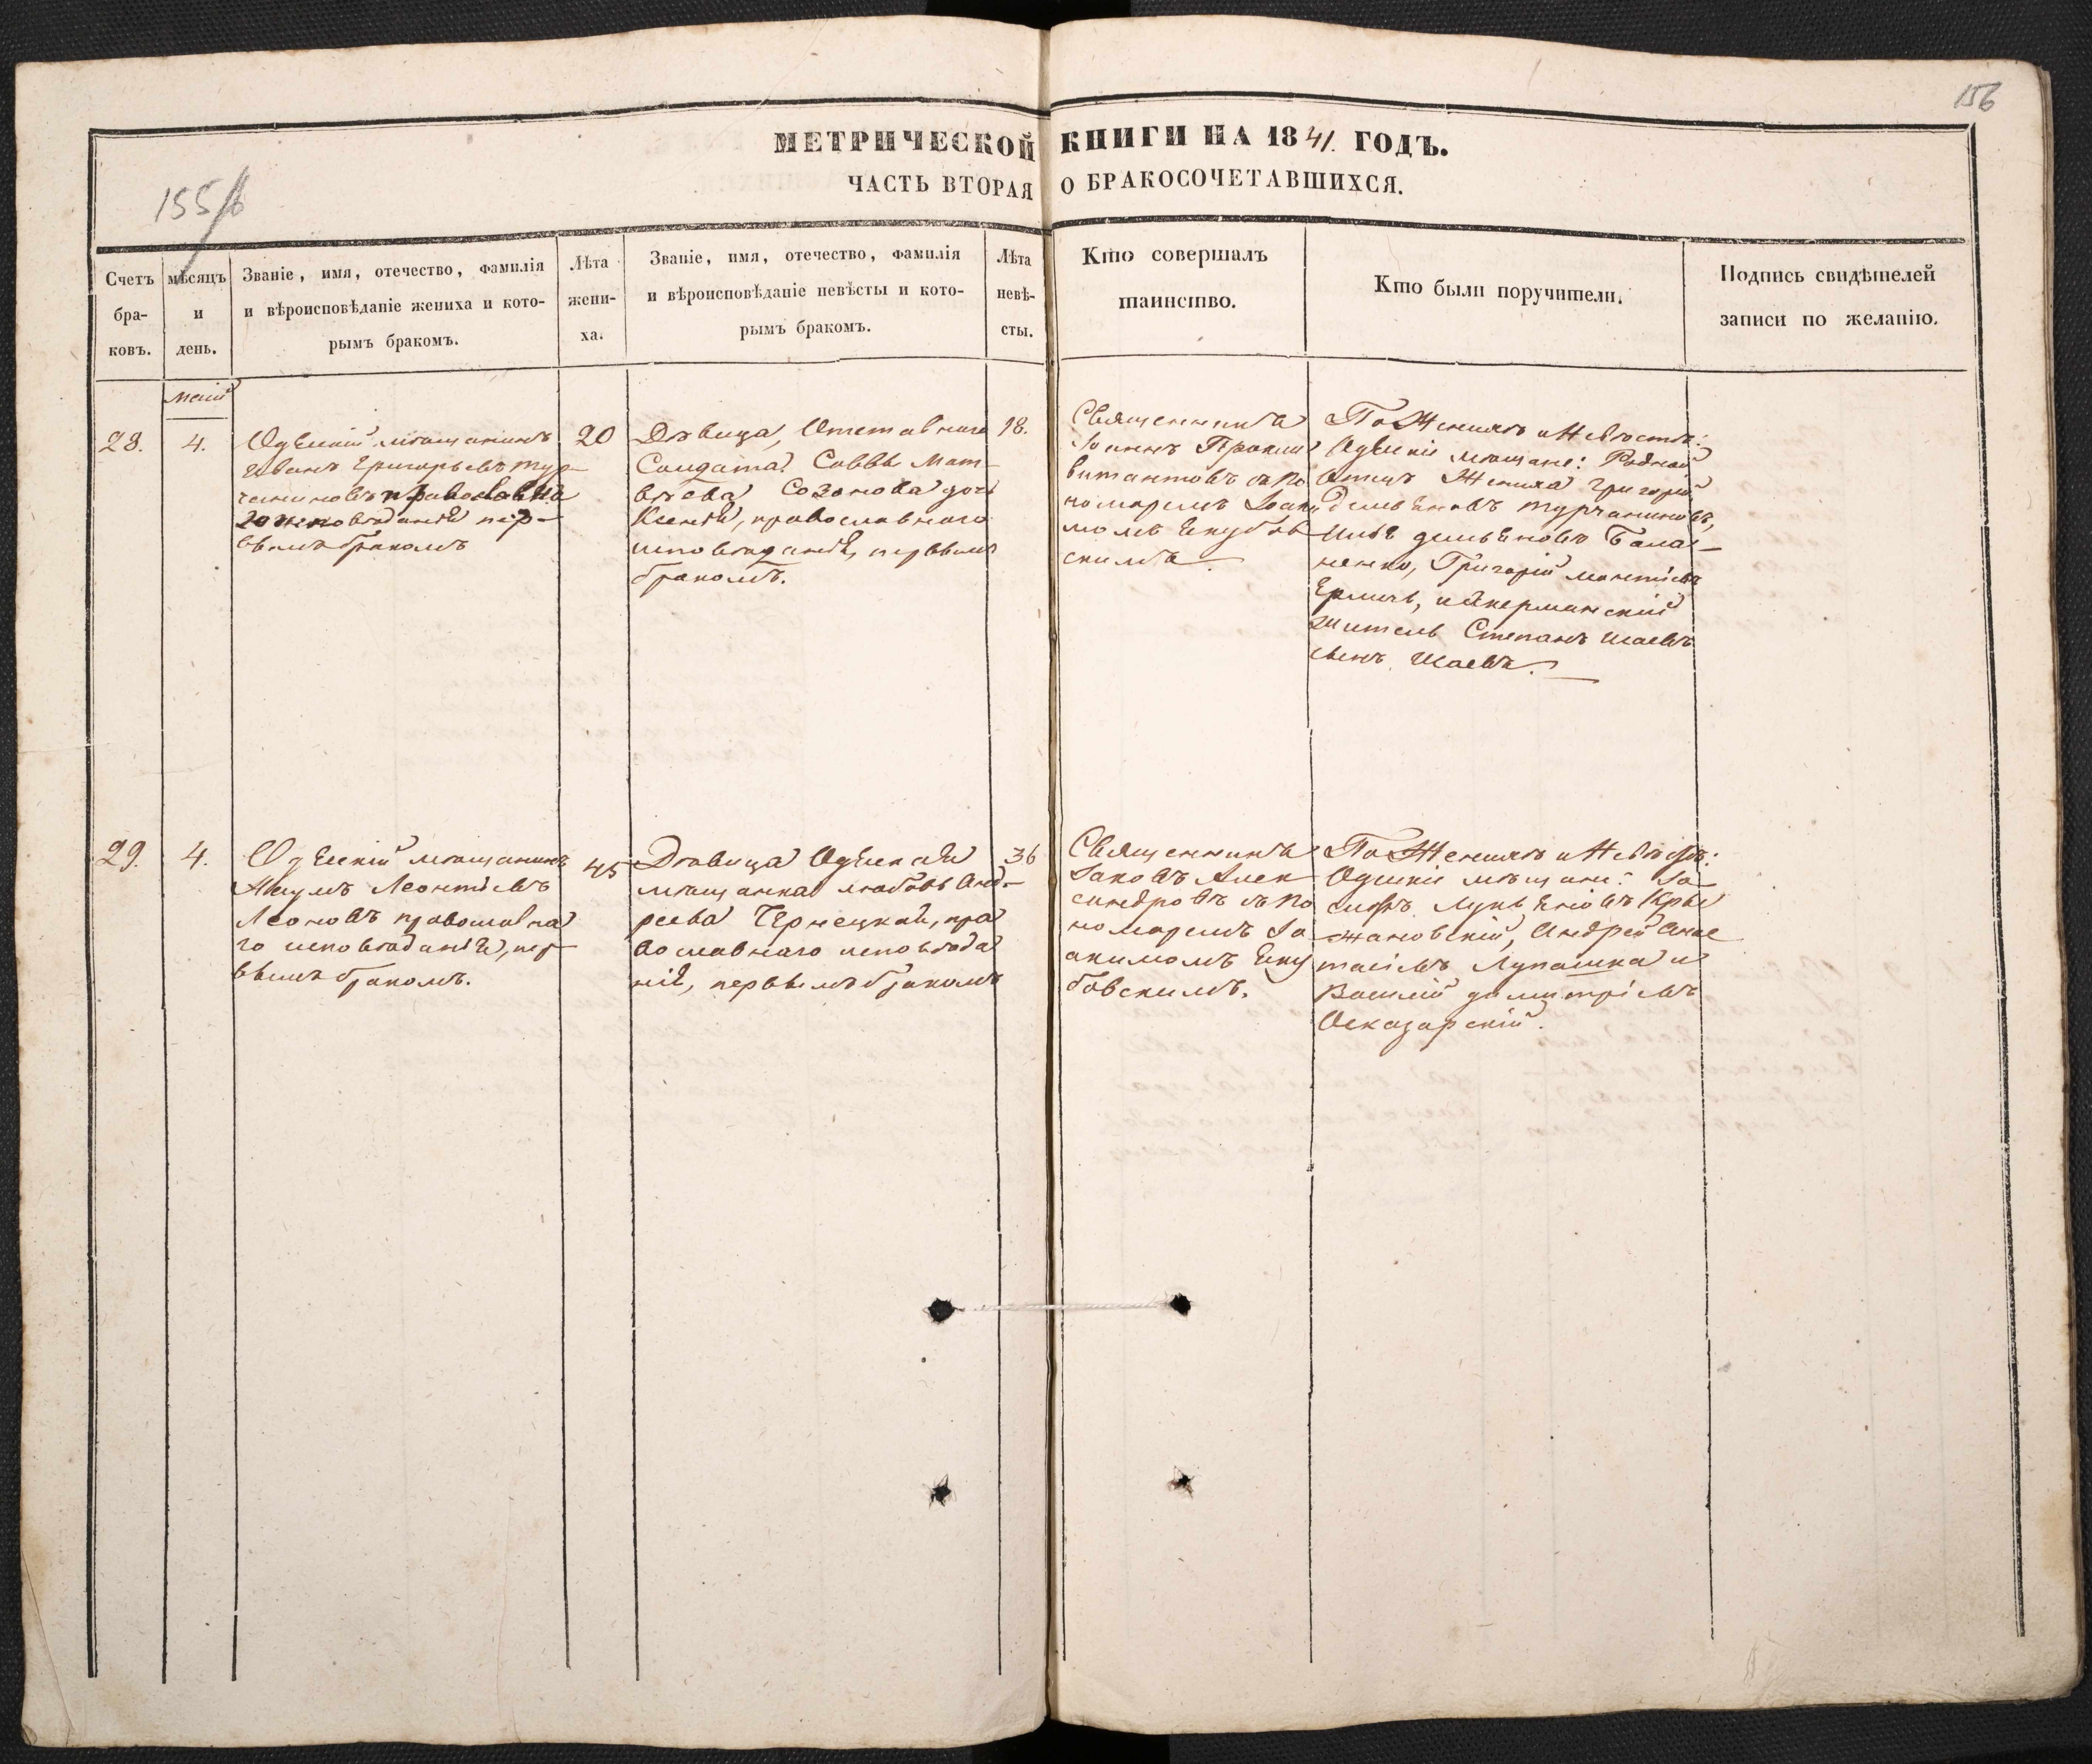 156
155/6
МЕТРИЧЕСКОЙ КНИГИ НА 1841. ГОДЪ.
ЧАСТЬ ВТОРАЯ О БРАКОСОЧЕТАВШИХСЯ.
Счетъ
бра-
ковъ.
мѣсяцъ
и
день.
Званіе, имя, отечество, фамилія
и вѣроисповѣданіе жениха и кото-
рымъ бракомъ.
Лѣта
жени-
ха.
Званіе, имя, отечество, фамилія
и вѣроисповѣданіе невѣсты и кото-
рымъ бракомъ.
Лѣта
невѣ-
сты.
Кто совершалъ
таинство.
Кто были поручители.
Подпись свидѣтелей
записи по желанію.
Маій
28.
4.
Одескій мѣщанинъ
Иванъ Григорьевъ Тур-
чаниновъ православна
го исповѣданія пер-
вымъ бракомъ
20
Дѣвица, Отставнаго
Солдата Саввы Мат-
вѣева Созонова дочь
Ксенія, православнаго
исповѣданія, первымъ
бракомъ.
18.
Священникъ
Іоаннъ
съ По
номаремъ Іоаки
момъ Якубов
скимъ.
По Женихѣ и Невѣстѣ:
Одескіе мѣщане: Родной
Отецъ Жениха Григорій
Турчаниновъ,
Григорій
и Акерманскій
житель Степанъ Исаевъ
сынъ Исаевъ.
29.
4.
Одескій мѣщанинъ
Наумъ Леонтіевъ
Леоновъ православна
го исповѣданія, пер
вымъ бракомъ.
45
Дѣвица Одеская
мѣщанка Любовь Анд-
реева Чернецкая, пра
вославнаго исповѣда
нія, первымъ бракомъ
36
Священникъ
Іаковъ Алек
сандровъ съ По
номаремъ Іо
акимомъ Яку
бовскимъ.
По Женихѣ и Невѣстѣ:
Одескіе мѣщане: Іо
сифъ
Андрей Анас
тасіевъ Лупашка и
Василій Димитріевъ